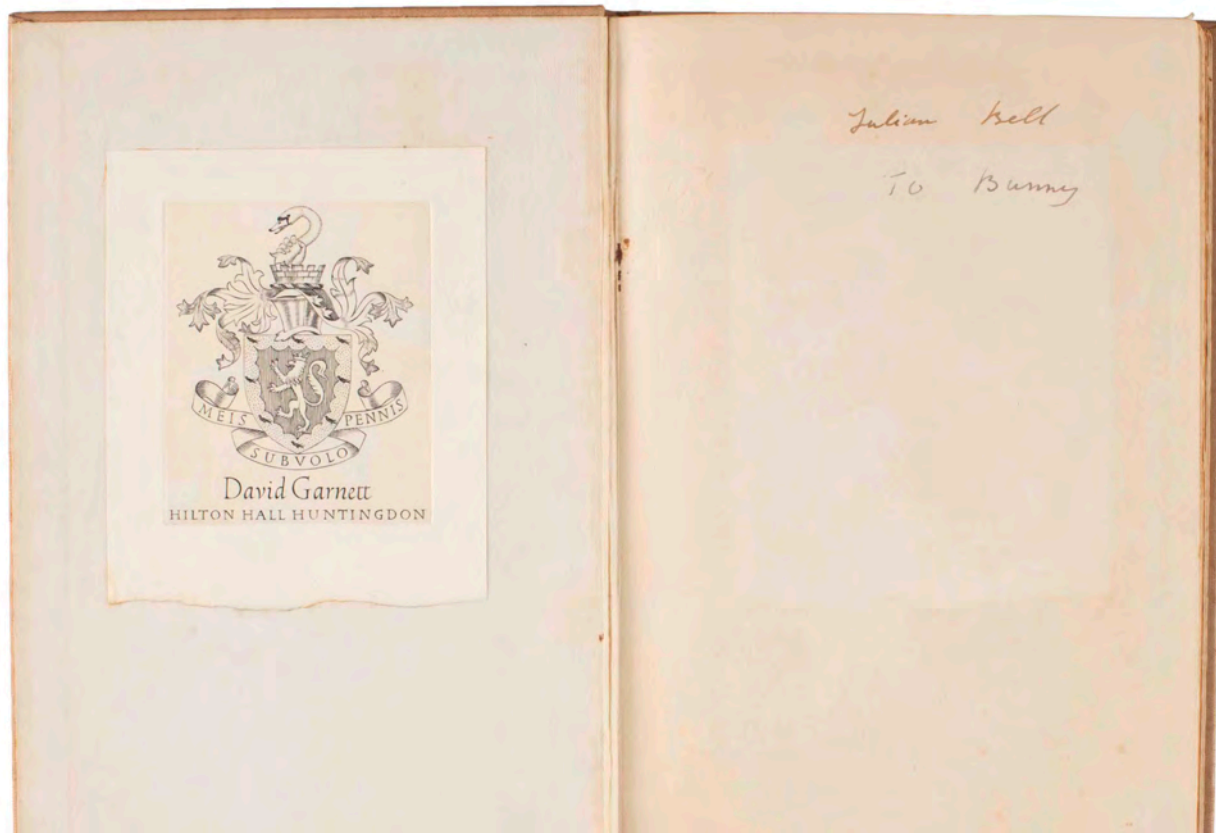 MEIS PENNIS
SUBVOLO
David Garnett
HILTON HALL HUNTINGDON
Julian Bell
To Bunny